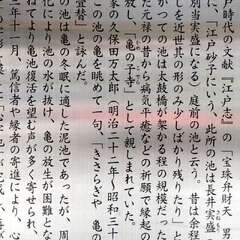 戸時代の文献『江戸志』の「宝珠弁財天 男
、「江戸砂子にいう、此所の池は長井実盛
別当実盛になる）庭前の池と云う。昔は余程
近世其の形のみ少しばかり残りたり」と
かつての池は太鼓橋が架かる程の規模だった
た元禄の昔から病気平癒などの祈願で縁起の
放し、「亀の子寺」として親しまれていた。
家の久保田万太郎（明治二十二年～昭和三十
の池と亀を眺め一句、「きさらぎや 亀の
畳替」と詠んだ。
の池は亀の冬眠に適した泥池であったが、周
化により池の水が抜け、亀の放生が困難とな
年より亀池復活を望む声が多く寄せられ、
三年一月、篤信者や縁者の寄進により、心